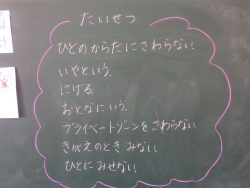 たいせつ
ひとのからだにさわらない
いやという。
にげる。
おとなにいう。
プライベートゾーンをさわらない
きがえのときみない
ひとにみせない